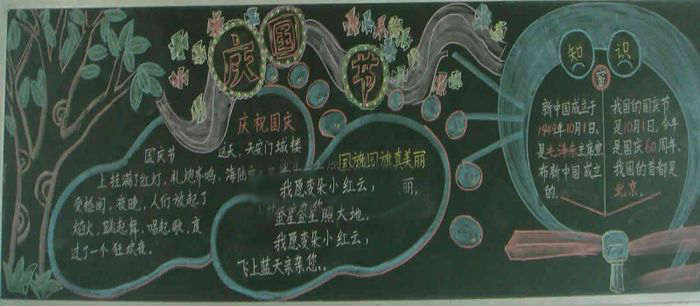 庆国节
庆祝国庆
国庆节
这天，天安门城楼
上挂满了红灯，礼炮齐鸣，
夜晚，人们放起了
焰火，跳起舞，唱起歌，度
过了一个狂欢夜。
国旗国旗真美丽
我愿变朵小红云，
金星金星照大地。
我愿变朵小红云，
飞上蓝天亲亲您。
知识
新中国成立于
1949年10月1日，
是毛泽东主席宣
布新中国成立
的。
我国的国庆节
是10月1日，今年
是国庆60周年。
我国的首都是
北京。